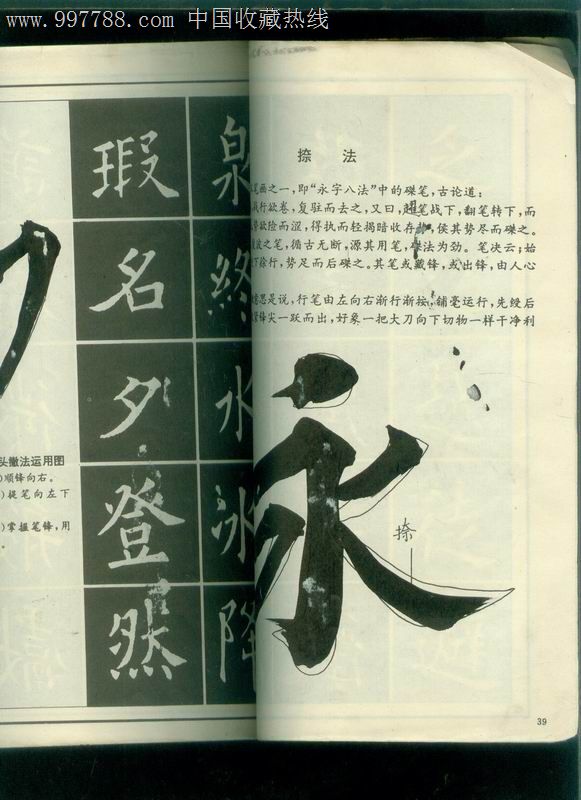 www.997788.com 中国收藏热线
瑕 泉
名 終
夕 水
登 冰
然 降
头撇法运用图
)顺锋向右。
)提笔向左下
)掌握笔锋,用
捺 法
笔画之一,即“永字八法”中的磔笔,古论道:
战行欲卷,复驻而去之,又曰,趯笔战下,翻笔转下,而
欲险而涩,得执而轻揭暗收存 ,侯其势尽而磔之。
波之笔,循古无断,源其用笔, 法为劲。笔决云;始
下徐行,势足而后磔之。其笔或藏锋,或出锋,由人心
意思是说,行笔由左向右渐行渐按,铺毫运行,先绞后
锋尖一跃而出,好象一把大刀向下切物一样干净利
永
捺
39